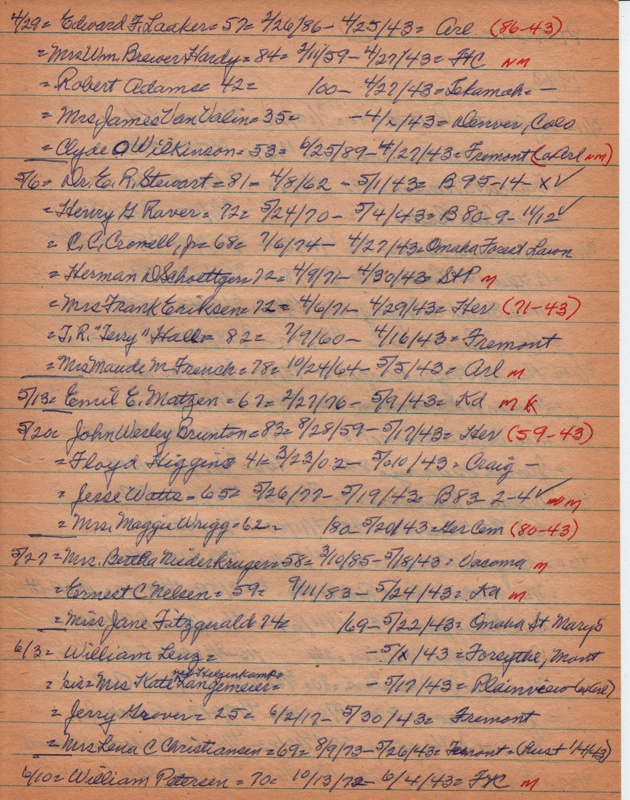 4/29= Edward F. Laaker= 57= 2/26/86- 4/25/43= Arl (86-43)
= Mrs Wm. Brewer Hardy= 84= 2/11/59- 4/27/43= FHC NM
= Robert Adams= 42= 100- 4/27/43= Tekamah= -
= Mrs James Van Valin= 35= -4/x/43= Denver, Colo
= Clyde O Wilkinson= 53= 6/25/89- 4/27/43= Fremont (exArl NM)
5/6= Dr. E. R. Stewart= 81= 4/8/62 - 5/1/43= B 95-14- x ✓
= Henry G Raver= 72= 5/24/70- 5/4/43= B 80-9- 11/12 ✓
= C. C. Cromell, Jr= 68= 7/6/74- 4/27/43= Omaha Forest Lawn
= Herman D Schoettger= 72= 4/9/71- 4/30/43= StP M
= Mrs Frank Eriksen= 72= 4/6/71- 4/29/43= Her (71-43)
= T. R. "Terry" Hall= 82= 7/9/60- 4/16/43= Fremont
= Mrs Maude M French= 78= 10/24/64- 5/5/43= Arl M
5/13= Emil E. Matzen= 67= 2/27/76- 5/9/43= Kd M K
5/20= John Wesley Brunton= 83= 8/28/59- 5/17/43= Her (59-43)
= Floyd Higgins 41= 3/23/02- 5/010/43= Craig -
= Jesse Watts= 65= 5/26/77- 5/19/43= B83 2-4 ✓ NM
= Mrs. Maggie Wrigg= 62= 180- 5/20/43= Her Cem (80-43)
5/27= Mrs. Bertha Niederkruger= 58= 3/10/85- 5/18/43= Vacoma M
= Ernest C Nelsen= 59= 9/11/83- 5/24/43= Kd M
= Miss Jane Fitzgerald 74= 169- 5/22/43= Omaha St Marys
6/3= William Lenz= -5/x/43= Forsythe, Mont
= sis= Mrs Kate Langemeier= -5/17/43= Plainview
= Jerry Grover= 25= 6/2/17- 5/30/43= Fremont
= Mrs Lena C Christiansen= 69= 8/9/73- 5/26/43= Fremont= (Rust 1/4/43)
6/10= William Petersen= 70= 10/13/72- 6/4/43= FHC M